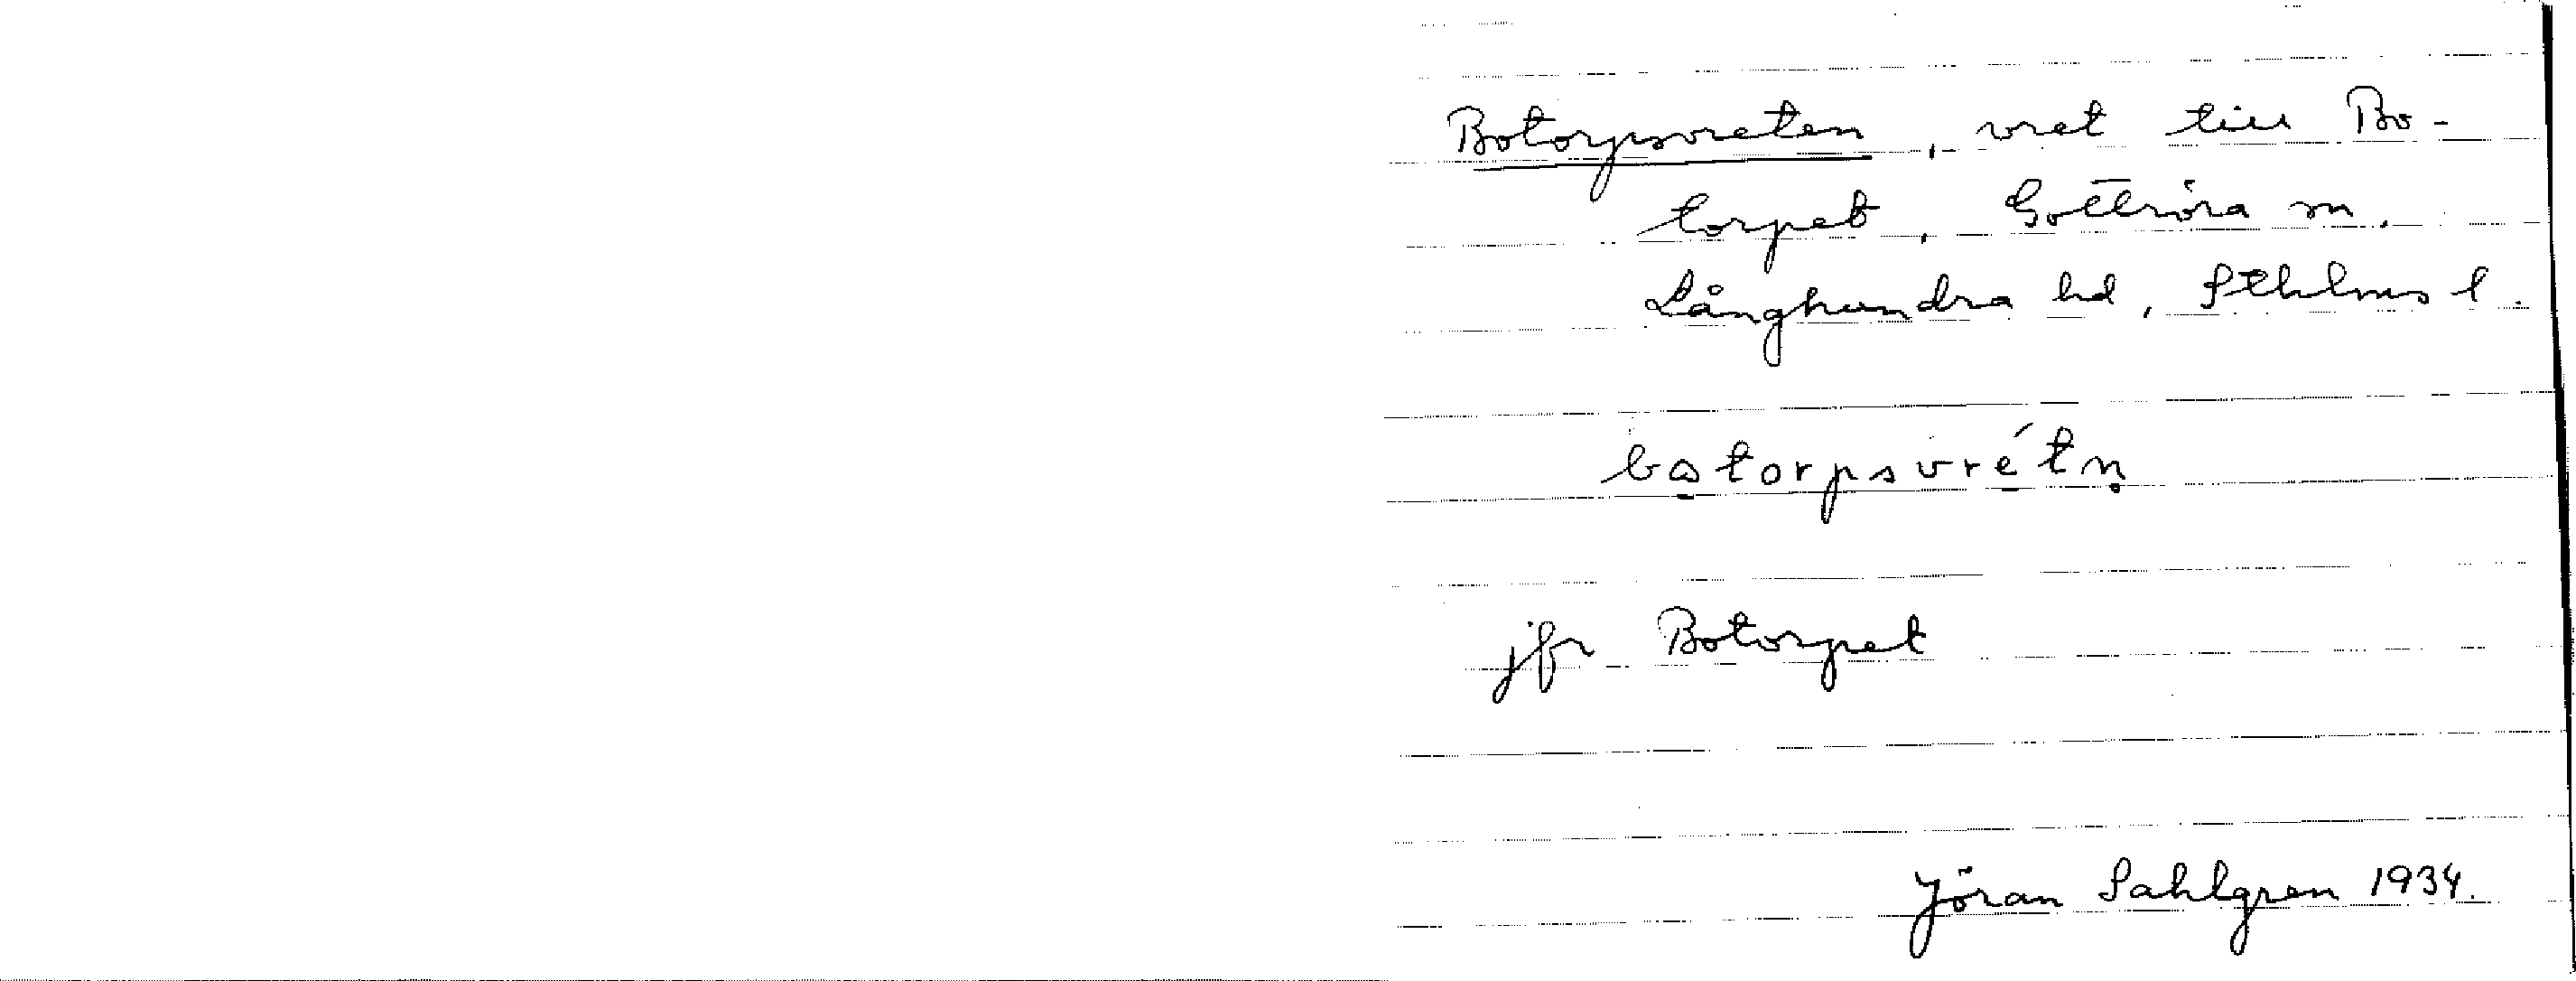 Botorpsvreten, vret till Bo-
torpet, Gottröra sn,
Långhundra hd, Sthlms l.
botorpsvrétn̥
jfr Botorpet
Jöran Sahlgren 1934.